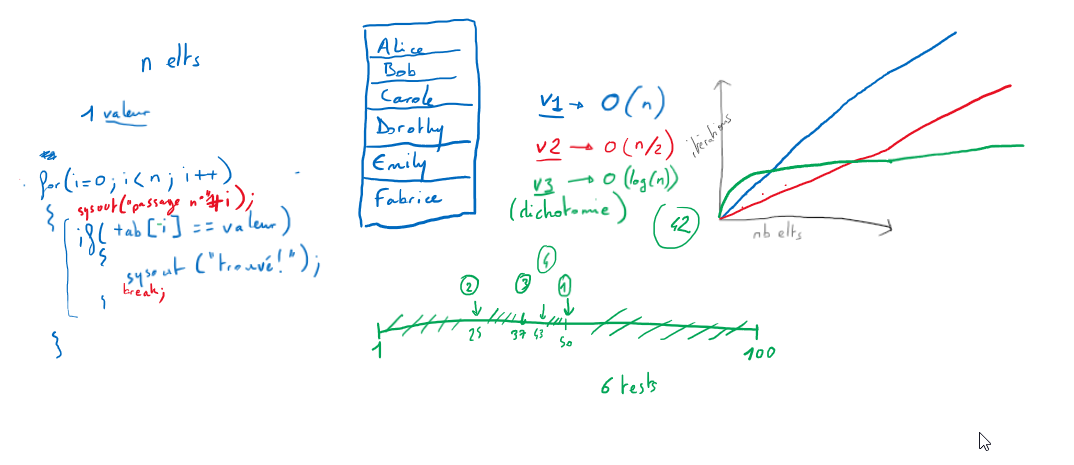 n elts
1 valeur
for(i=0; i<n; i++)
{ sysout("passage n°"+i);
if( tab[i] == valeur)
{
sysout ("trouvé!");
break;
}
}
Alice
Bob
Carole
Dorothy
Emily
Fabrice
v1 → O(n)
v2 → O(n/2)
v3 → O(log(n))
(dichotomie)
42
itérations
nb elts
4
2 3 1
25 37 43 50
1 100
6 tests